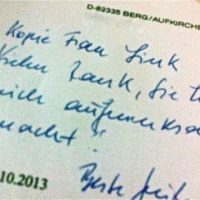 D-82335 BERG/AUFKIRCHE
Kopie Frau Link
Vielen Dank, Sie h
mich aufmerksa
macht!
10.2013
Beste